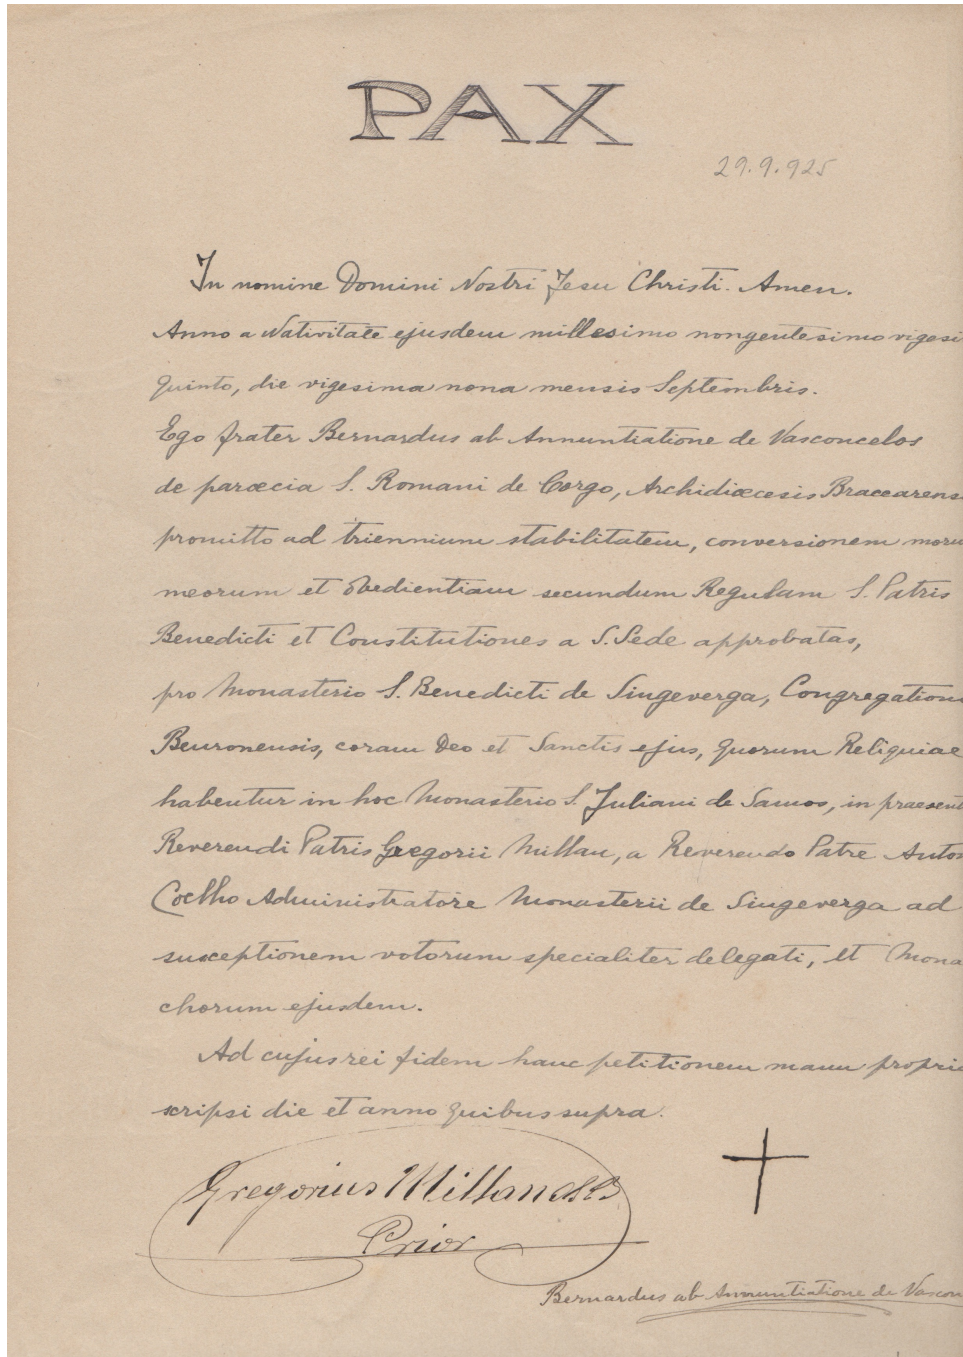 PAX
29.9.925
In nomine Domini Nostri Jesu Christi. Amen.
Anno a Nativitate ejusdem millesimo nongentesimo vigesi
quinto, die vigesima nona mensis Septembris.
Ego frater Bernardus ab Annuntiatione de Vasconcelos
de parœcia S. Romani de Corgo, Archidiœcesis Bracarens
promitto ad triennium stabilitatem, conversionem moru
meorum et obedientiam secundum Regulam S. Patris
Benedicti et Constitutiones a S. Sede approbatas,
pro Monasterio S. Benedicti de Singeverga, Congregation
Beuronensis, coram Deo et Sanctis ejus, quorum Reliquiae
habentur in hoc Monasterio S. Juliani de Samos, in praesent
Reverendi Patris Gregorii Millan, a Reverendo Patre Anton
Coelho Administratore Monasterii de Singeverga ad
susceptionem votorum specialiter delegati, et Mona
chorum ejusdem.
Ad cujus rei fidem hanc petitionem manu propri
scripsi die et anno quibus supra.
Gregorius Millan OSB
Prior
Bernardus ab Annuntiatione de Vascon